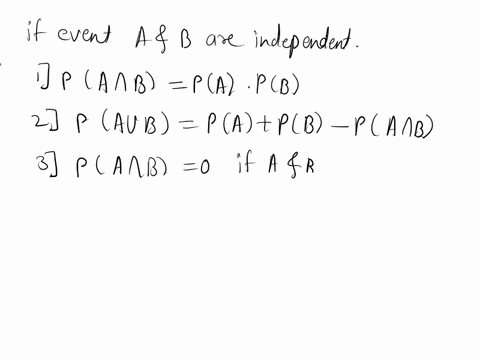 if event A & B are independent.
1] P (A∩B) = P(A) . P(B)
2] P (A∪B) = P(A) + P(B) – P(A∩B)
3] P (A∩B) = 0 if A & R